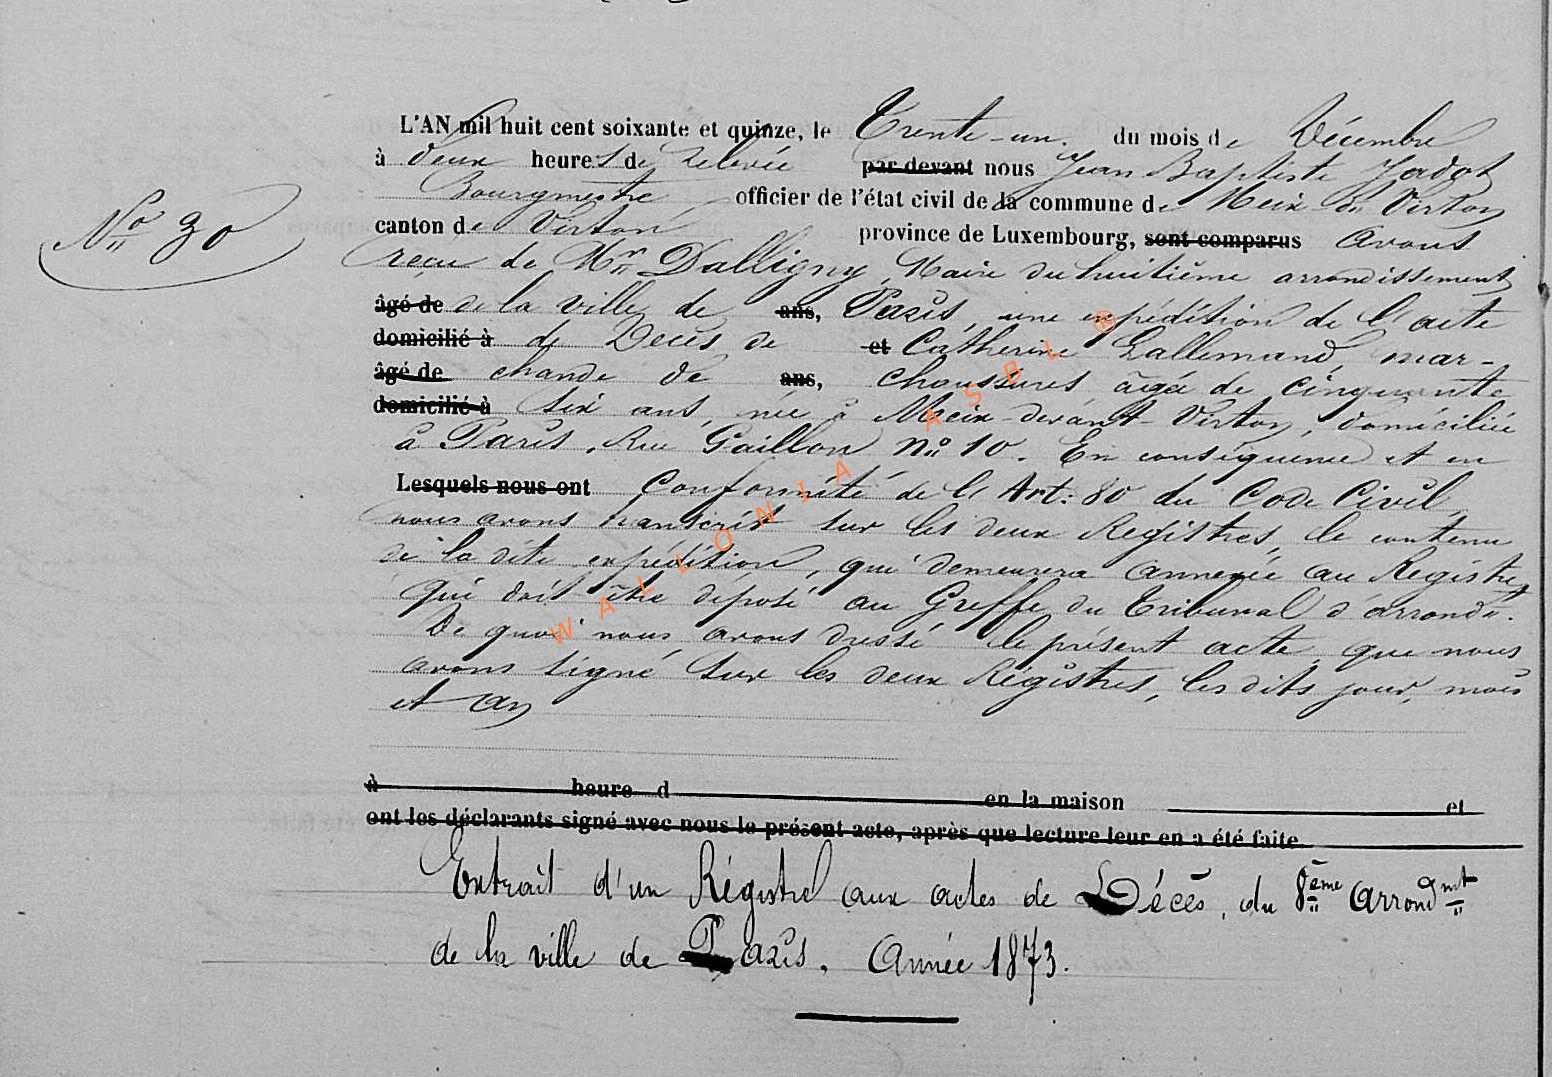 L'AN mil huit cent soixante et quinze, le Trente-un. du mois de Décembre
à deux heures de relevée par devant nous Jean Baptiste Jadot
Bourgmestre officier de l'état civil de la commune de Meix-dt Virton
N° 30
canton de Virton province de Luxembourg, sont comparus avons
recu de Mr Dalligny, Maire du huitième arrondissement
âgé de de la ville de ans, Paris, une expédition de l'acte
domicilié à de Décès de et Catherine Lallemand, mar-
âgé de chande de ans, chaussures âgée de cinquante
domicilié à six ans, née à Meix-devant-Virton, domiciliée
à Paris, Rue Gaillon N° 10. En conséquence et en
Lesquels nous ont Conformité de l'Art: 80 du Code Civil,
nous avons transcrit sur les deux Registres, le contenu
de la dite expédition, qui demeurera annexée au Registre
qui doit être déposé au Greffe du Tribunal d'arrondt.
De quoi nous avons dressé le présent acte, que nous
avons signé sur les deux Régistres, les dits jour, mois
et an
à heure d en la maison et
ont les déclarants signé avec nous le présent acte, après que lecture leur en a été faite
Extrait d'un Régistre aux actes de Décès, du 8ème arrondmt
de la ville de Paris. Année 1873.
WALLONIA ASBL ®